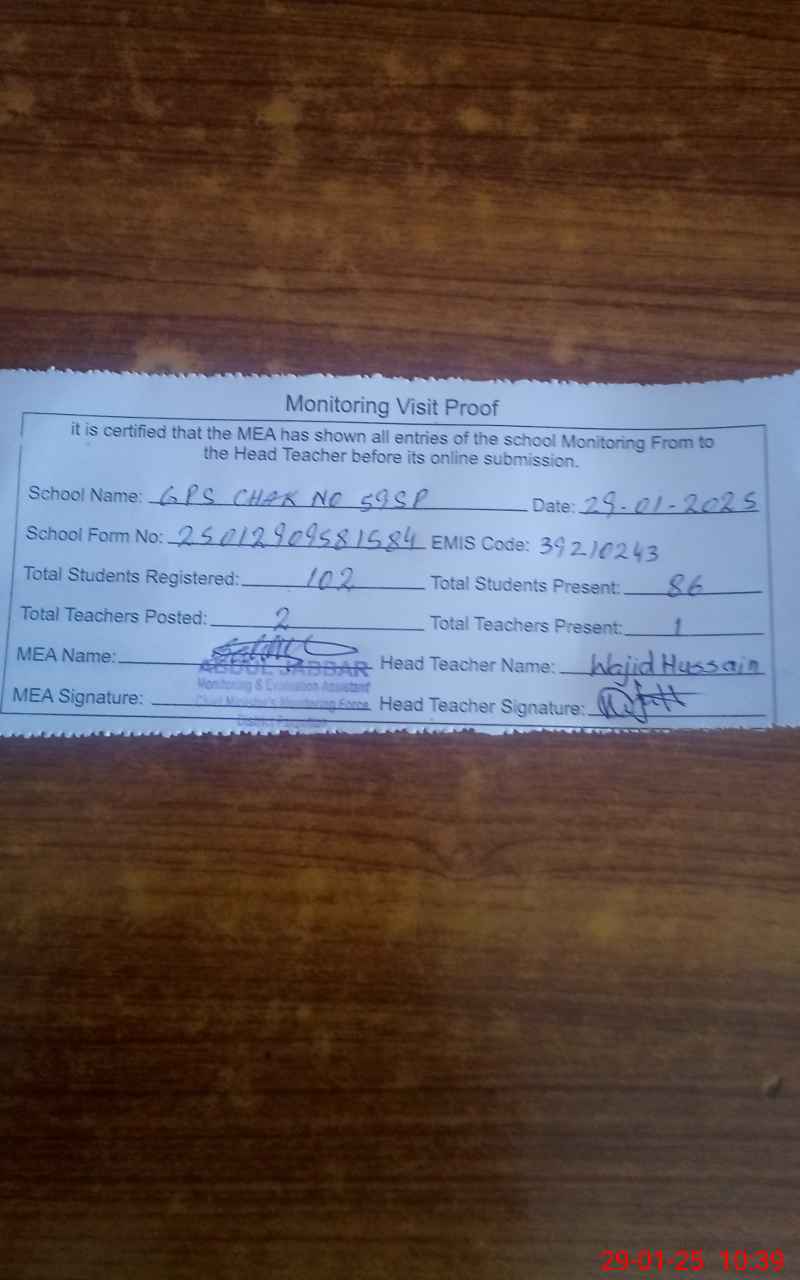 Monitoring Visit Proof
it is certified that the MEA has shown all entries of the school Monitoring From to
the Head Teacher before its online submission.
School Name: GPS CHAK NO 59SP Date: 29-01-2025
School Form No: 25012909581584 EMIS Code: 39210243
Total Students Registered: 102 Total Students Present: 86
Total Teachers Posted: 2 Total Teachers Present: 1
MEA Name: ABDUL JABBAR Head Teacher Name: Wajid Hussain
Monitoring & Evaluation Assistant
Chief Minister's Monitoring Force
MEA Signature: Head Teacher Signature:
District
29-01-25 10:39